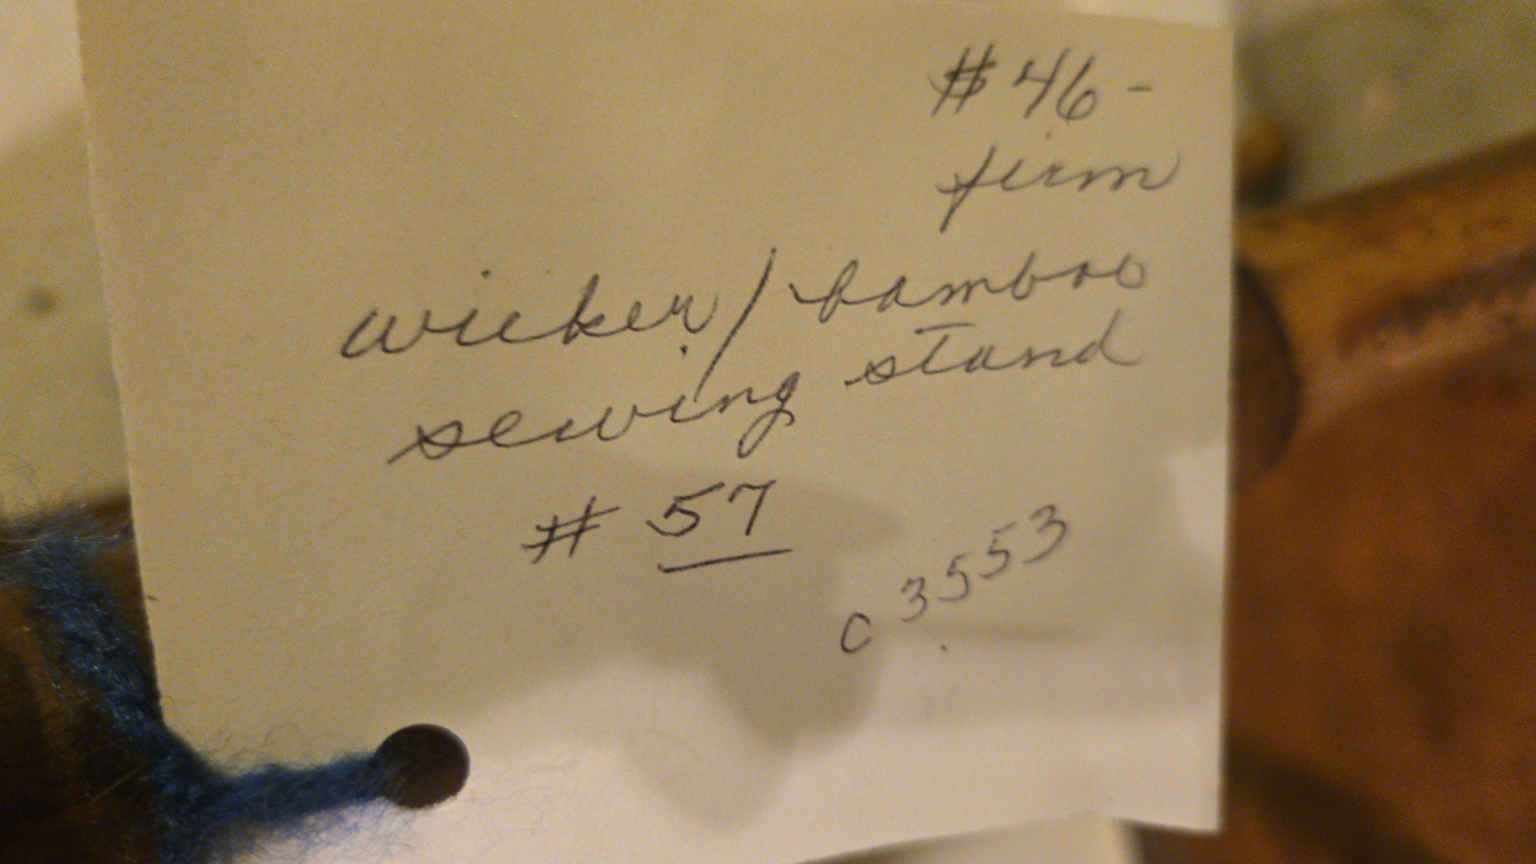 #46-
firm
wicker/bamboo
sewing stand
# 57
03553